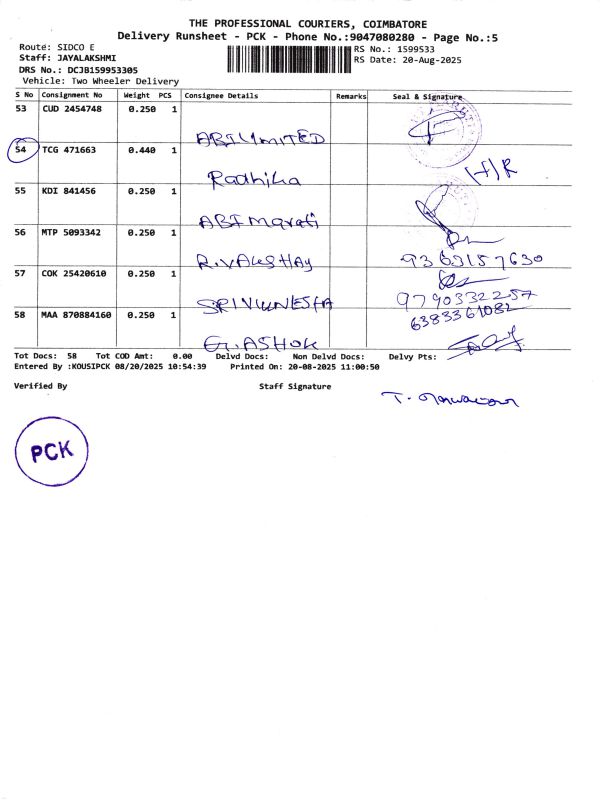 THE PROFESSIONAL COURIERS, COIMBATORE
Delivery Runsheet - PCK - Phone No.:9047080280 - Page No.:5
Route: SIDCO E
Staff: JAYALAKSHMI
DRS No.: DCJB159953305
Vehicle: Two Wheeler Delivery
RS No.: 1599533
RS Date: 20-Aug-2025
S No Consignment No Weight PCS Consignee Details Remarks Seal & Signature
53 CUD 2454748 0.250 1 ABI LIMITED
54 TCG 471663 0.440 1 Radhika H/R
55 KDI 841456 0.250 1
56 MTP 5093342 0.250 1 R.VAKSHAY
57 COK 25420610 0.250 1 9790332257
58 MAA 870884160 0.250 1 G.ASHOK 6383361082
Tot Docs: 58 Tot COD Amt: 0.00 Delvd Docs: Non Delvd Docs: Delvy Pts:
Entered By :KOUSIPCK 08/20/2025 10:54:39 Printed On: 20-08-2025 11:00:50
Verified By Staff Signature
PCK